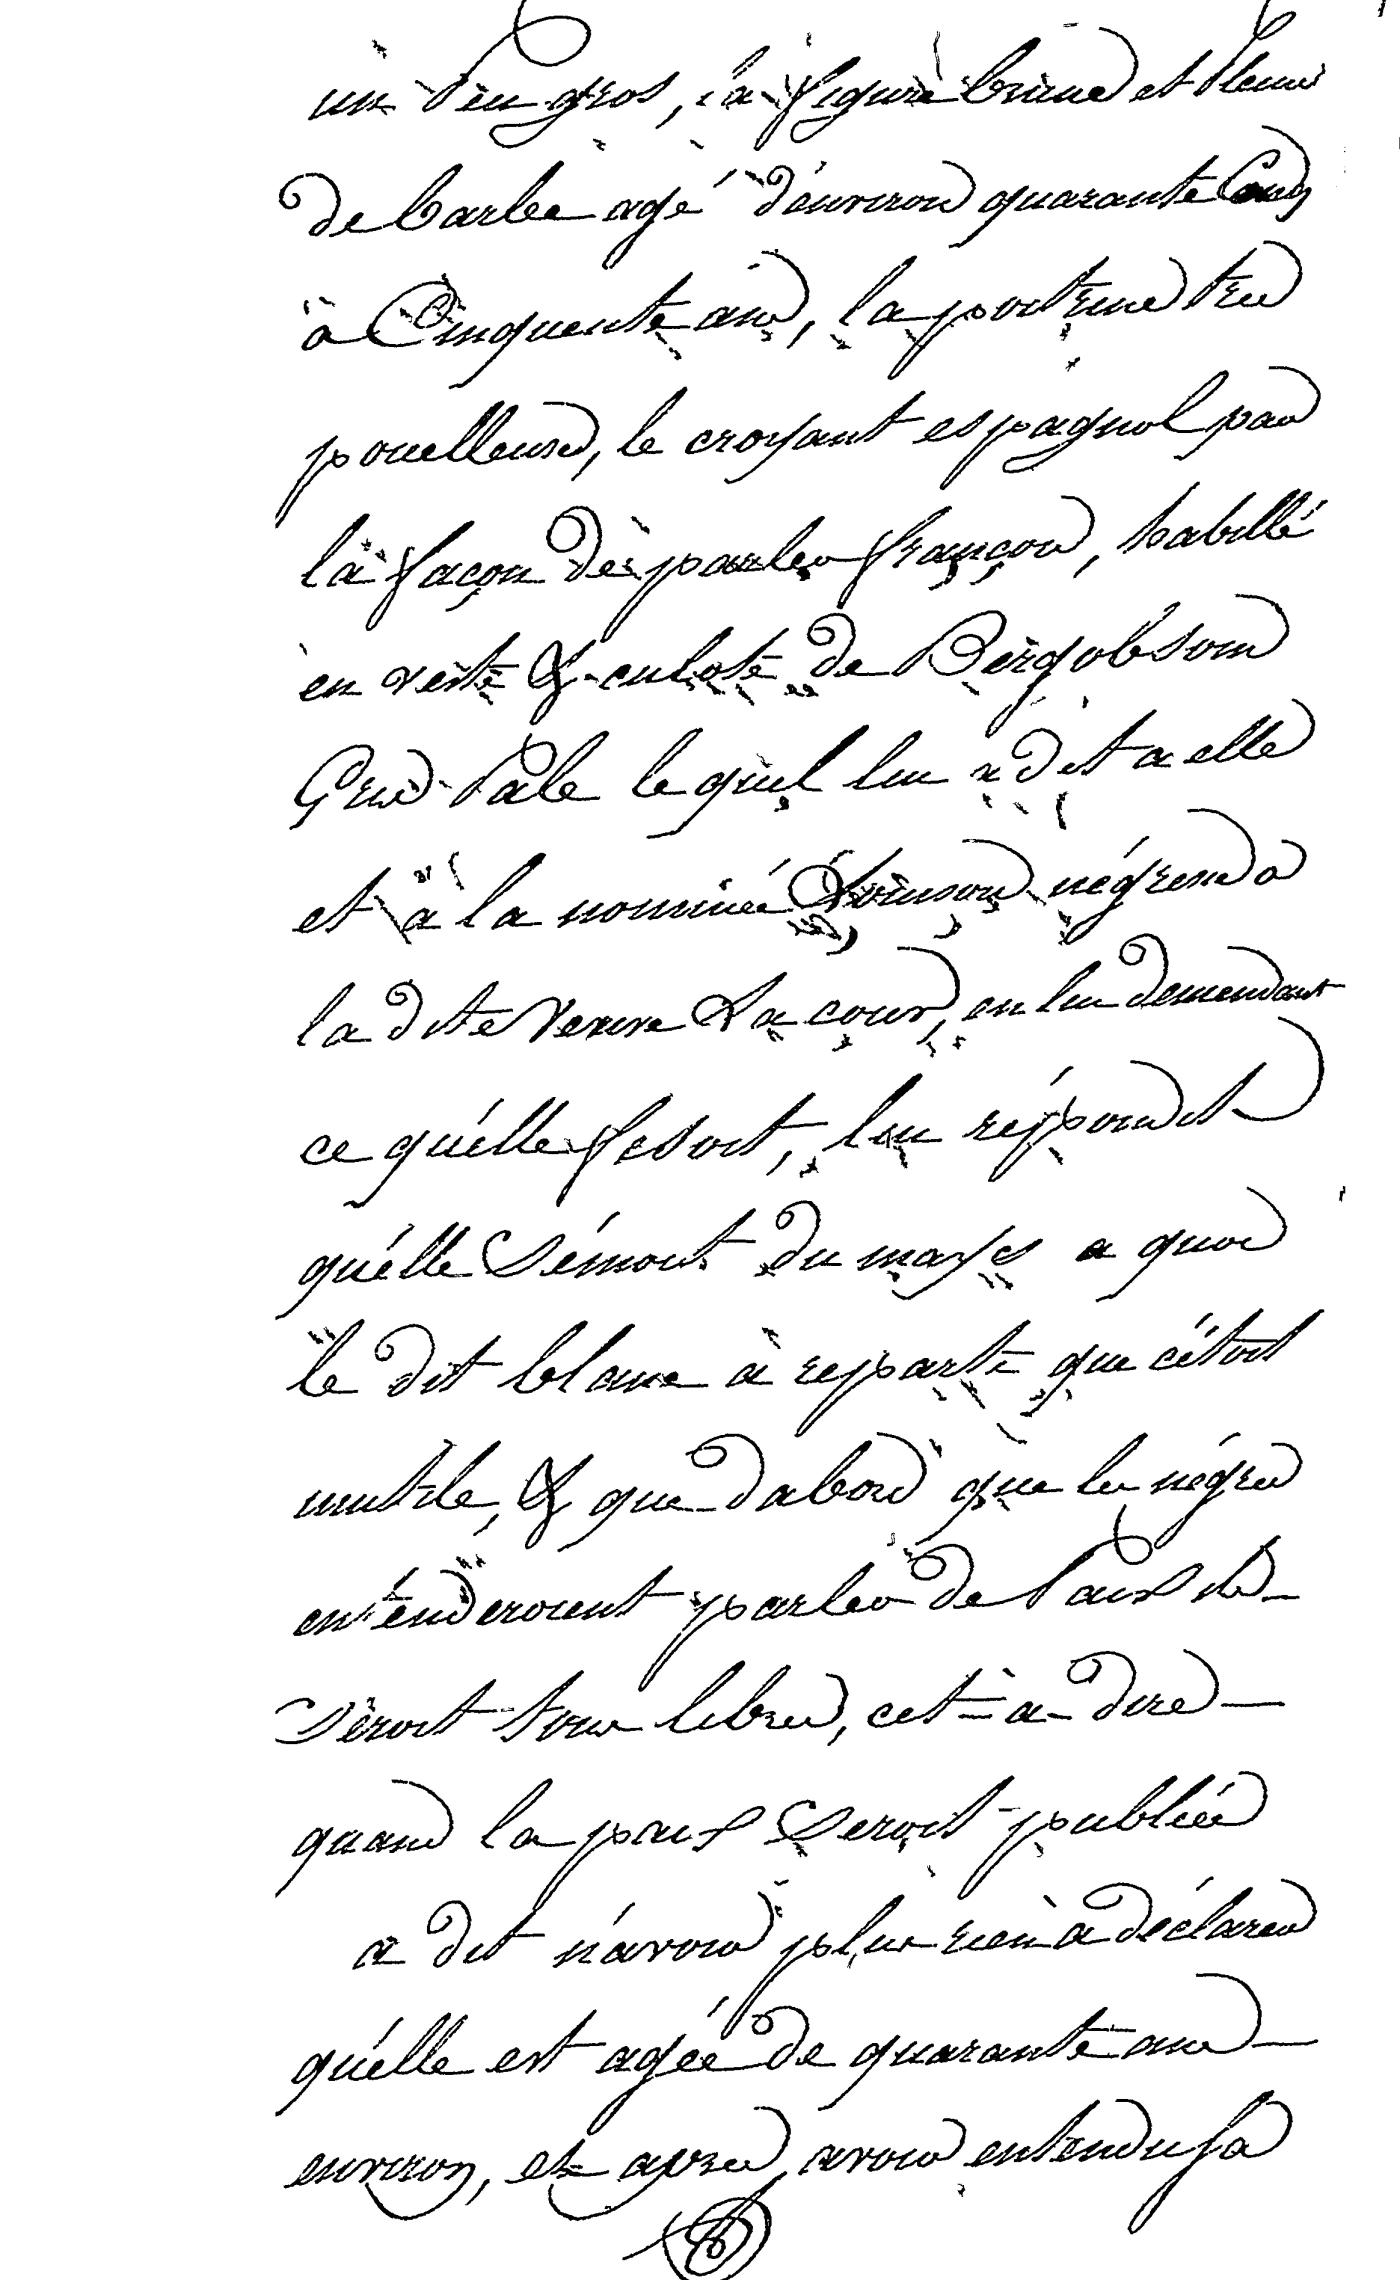 un peu gros, la figure brune et pleine
de barbe agé d'environ quarante Cinq
à Cinquente ans, la poitrine tres
pouelleuse, le croyant espagnol par
la façon de parler françois, habillé
en veste & culote de Bergobsom
Gris Pale le quel lui a dit a elle
et à la nommée négresse a
la dite Veuve La cour, en lui demendant
ce qu'elle fesoit, lui répondit
qu'elle sémoit du mays a quoi
le dit blanc à reparti que c'étoit
inutile, & que dabord que les négres
entenderoient parler de Paix ils
seroit tous libres, cet-à-dire
quand la paix seroit publiée
a dit n'avoir plus rien à déclarer
qu'elle est agée de quarante ans
environ, et apres avoir entendu sa